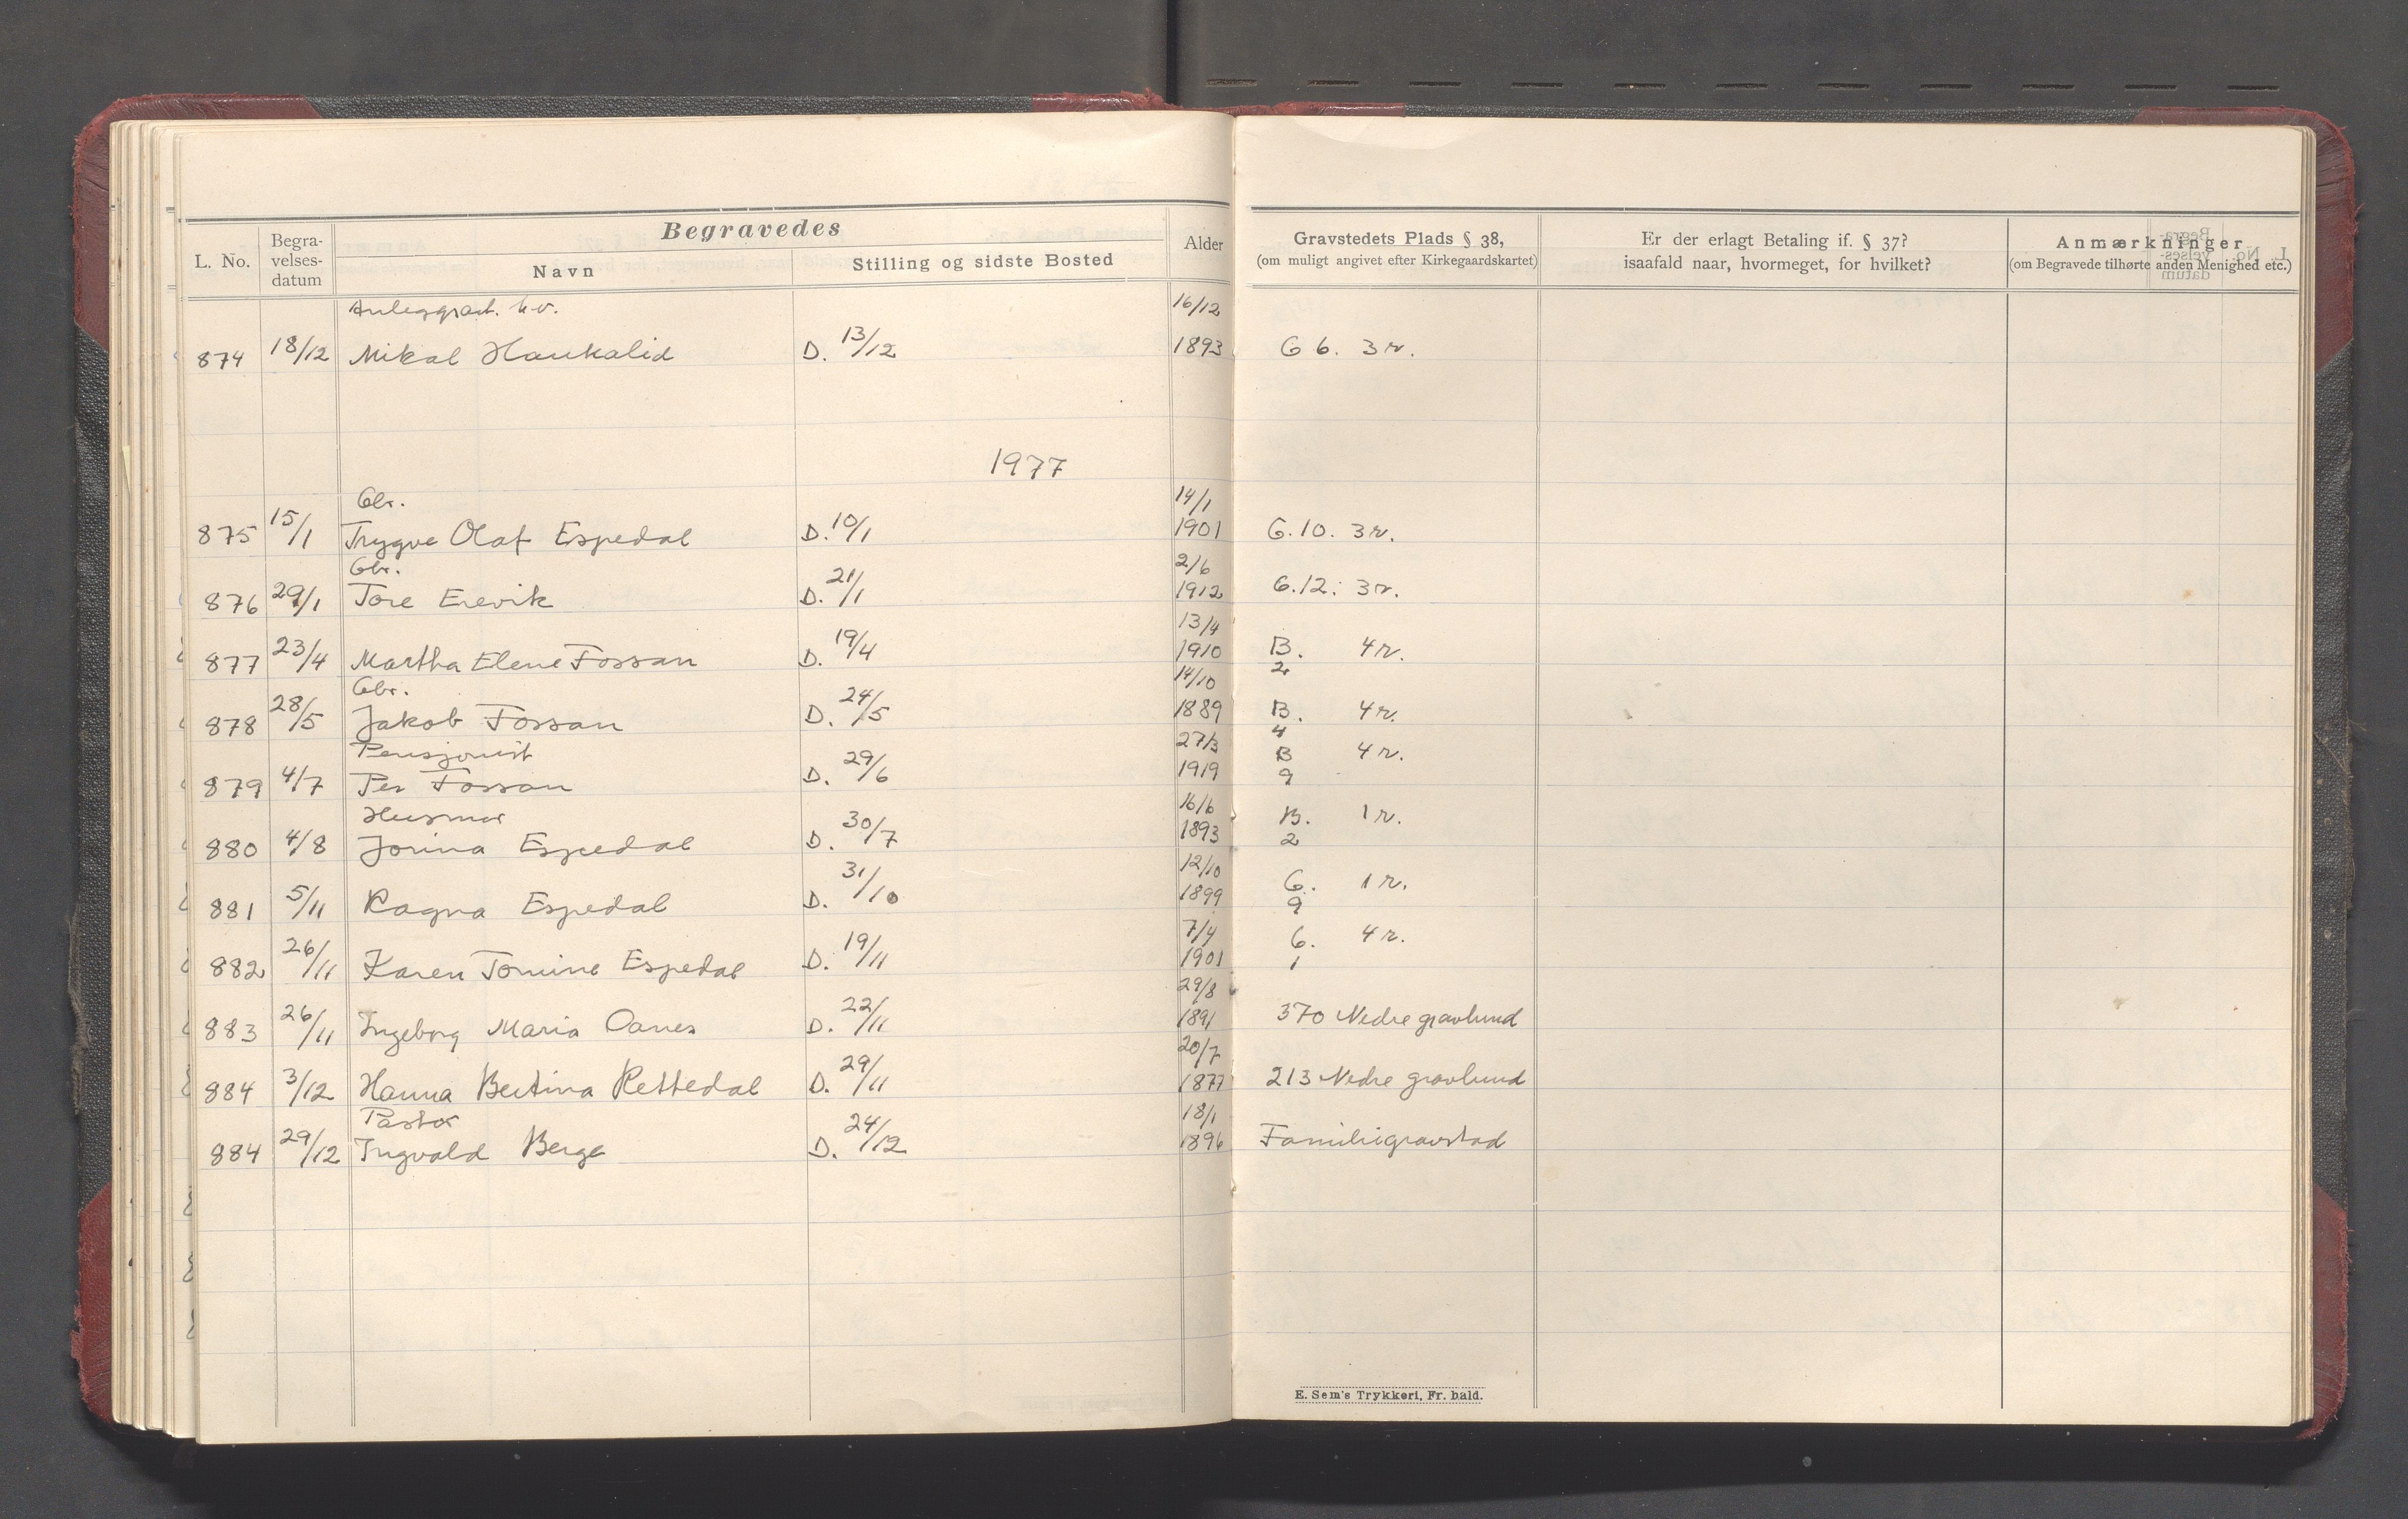 Begravedes
L. No. Begra-velses-datum Navn Stilling og sidste Bosted Alder Gravstedets Plads § 38, (om muligt angivet efter Kirkegaardskartet) Er der erlagt Betaling if. § 37? isaafald naar, hvormeget, for hvilket? Anmærkninger (om Begravede tilhørte anden Menighed etc.)
16/12
874 18/12 Mikal Haukalid D. 13/12 1893 G 6. 3 r.
1977
Gbr. 14/1
875 15/1 Trygve Olaf Espedal D. 10/1 1901 G. 10. 3 r.
Gbr. 2/6
876 29/1 Tore Erevik D. 21/1 1912 G. 12. 3 r.
13/4
877 23/4 Martha Elene Fossan D. 19/4 1910 B. 4 r.
2
Gbr. 14/10
878 28/5 Jakob Fossan D. 24/5 1889 B. 4 r.
4
Pensjonist 27/3
879 4/7 Per Fossan D. 29/6 1919 B 4 r.
9
Husmor 16/6
880 4/8 Jorina Espedal D. 30/7 1893 B. 1 r.
2
12/10
881 5/11 Ragna Espedal D. 31/10 1899 G. 1 r.
9
7/4
882 26/11 Karen Tomine Espedal D. 19/11 1901 G. 4 r.
1
29/8
883 26/11 Ingeborg Maria Oanes D. 22/11 1891 370 Nedre gravlund
20/7
884 3/12 Hanna Bertina Rettedal D. 29/11 1877 213 Nedre gravlund
Pastor 18/1
884 29/12 Ingvald Berge D. 24/12 1896 Familiegravstad
E. Sem's Trykkeri, Fr. hald.